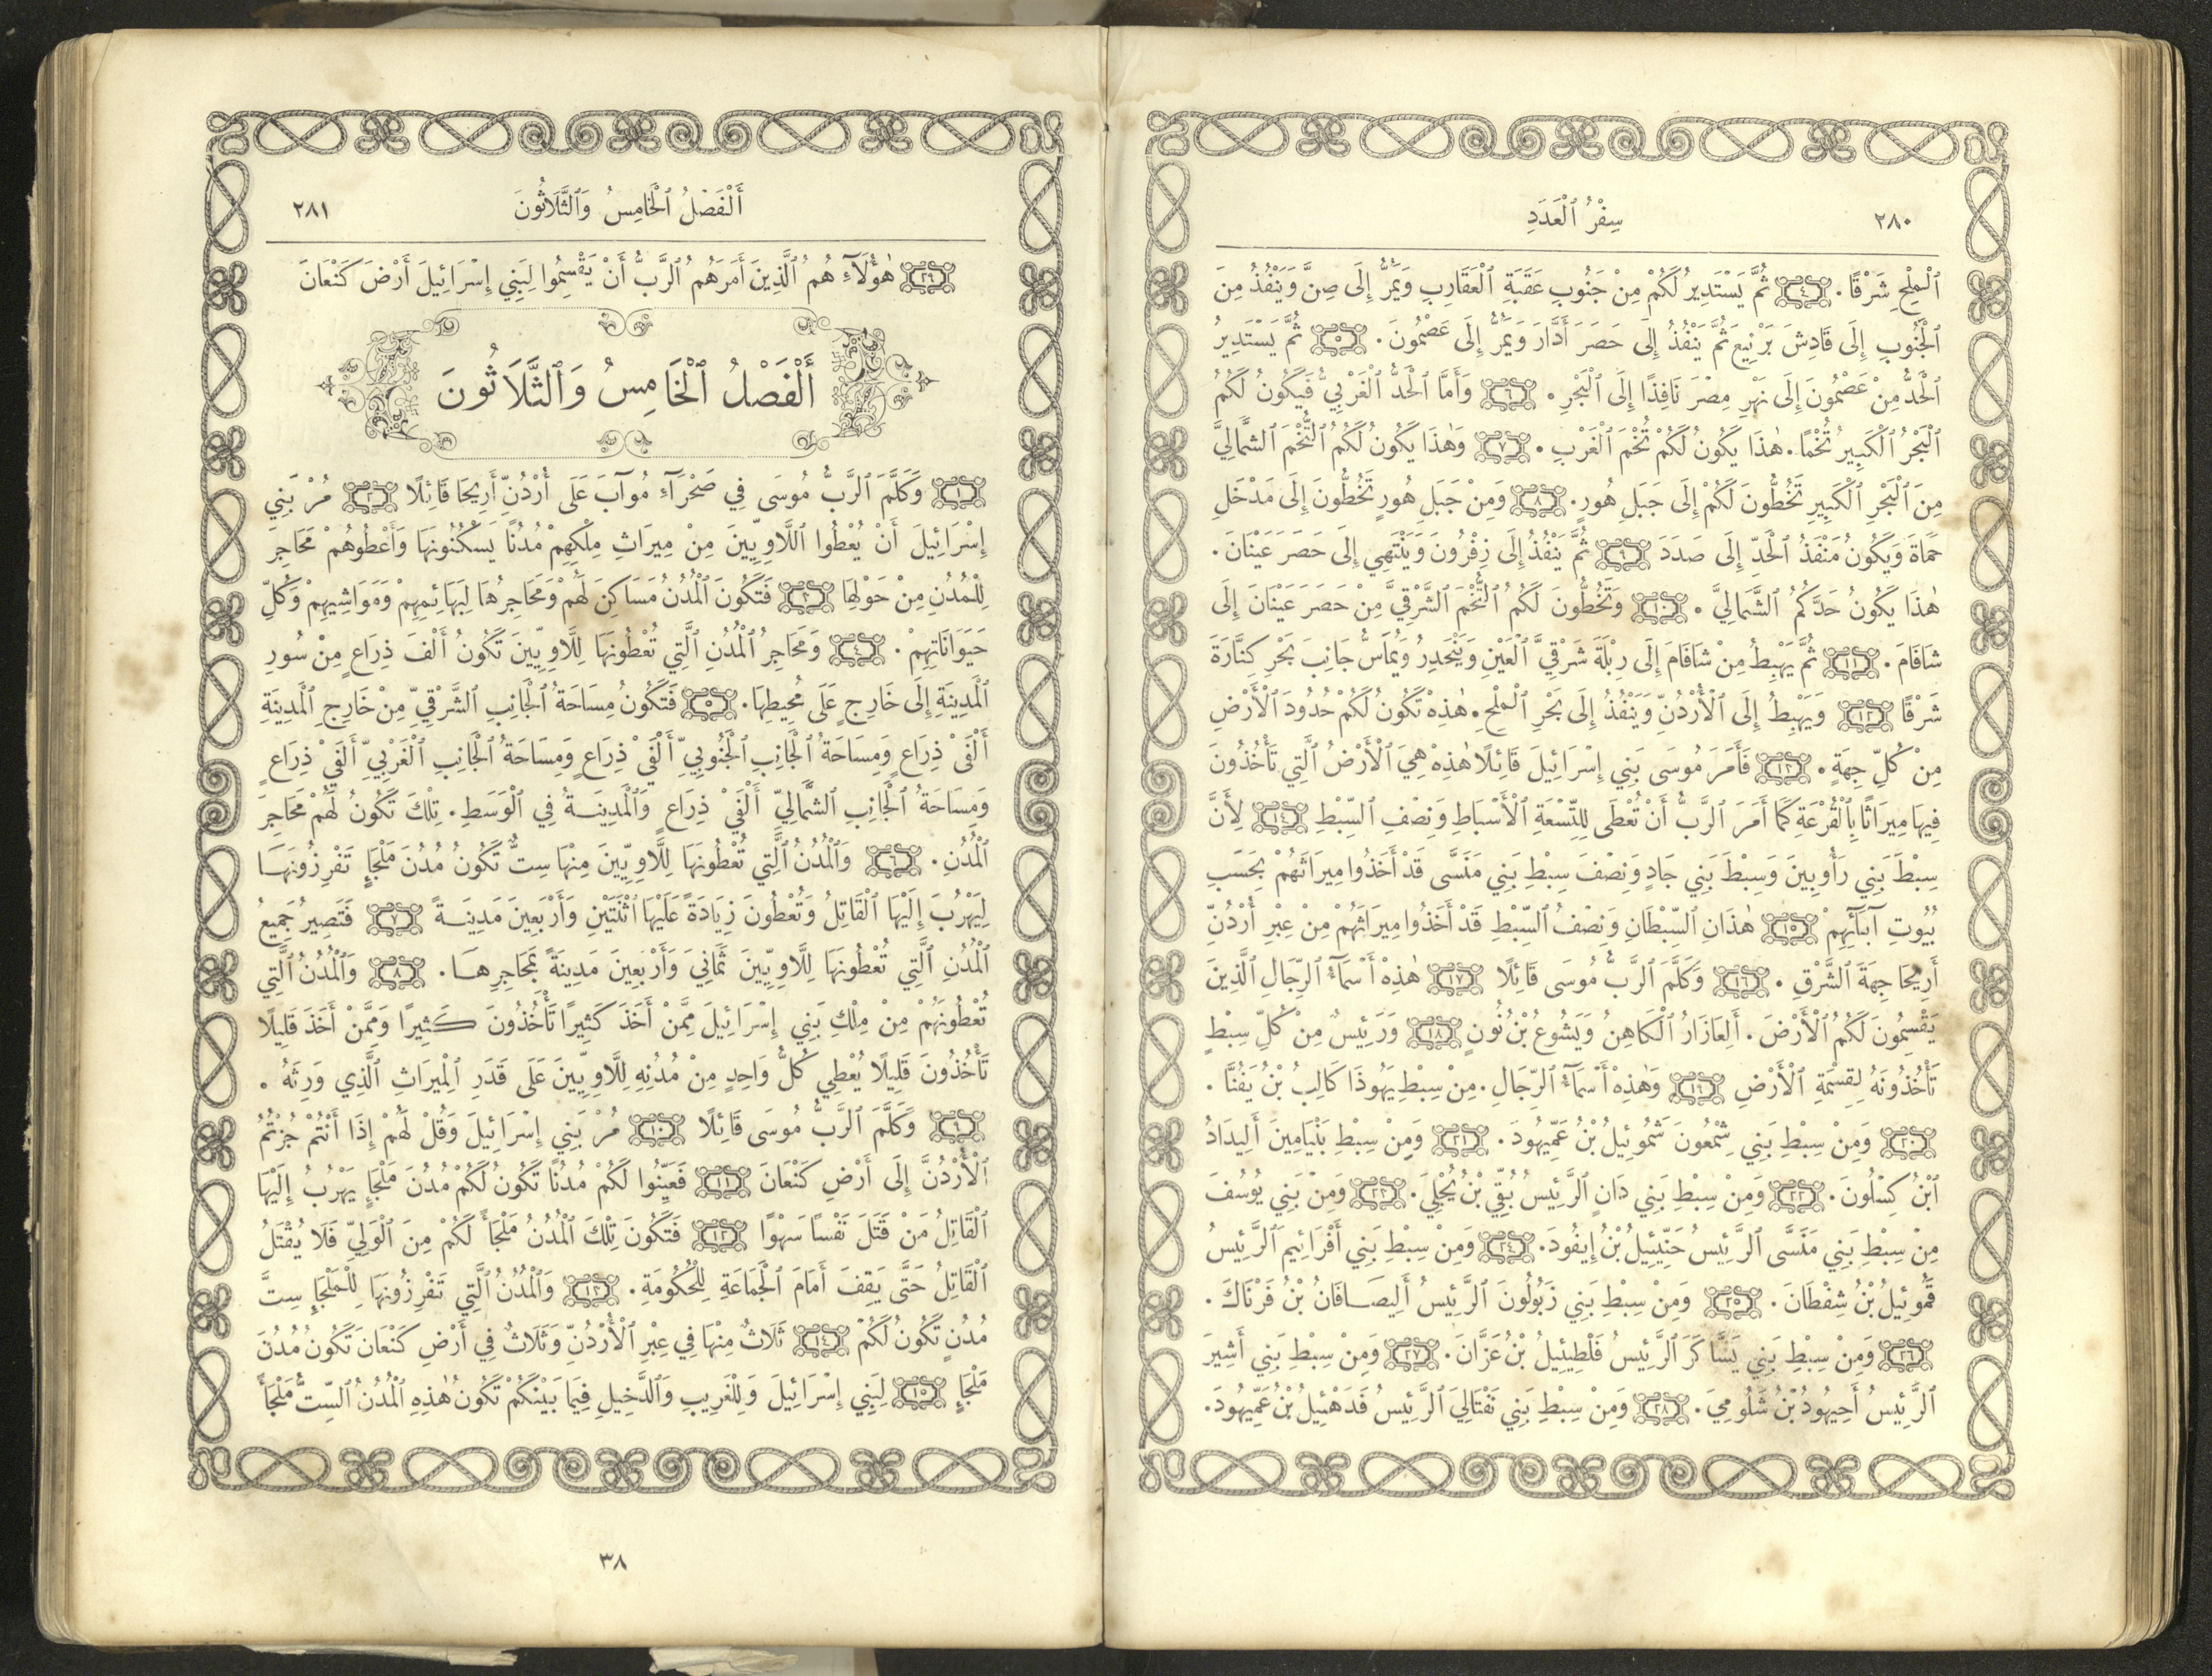 ٢٨٠
سِفْرُ ٱلْعَدَدِ
ٱلْمِلْحِ شَرْقًا ۰ ٤ ثُمَّ يَسْتَدِيرُ لَكُمْ مِنْ جَنُوبِ عَقَبَةِ ٱلْعَقَارِبِ وَيَمُرُّ إِلَى صِنَّ وَيَنْفُذُ مِنَ
ٱلْجَنُوبِ إِلَى قَادِشَ بَرْنِيعَ ثُمَّ يَنْفُذُ إِلَى حَصَرَ أَدَّارَ وَيَمُرُّ إِلَى عَصْمُونَ ۰ ٥ ثُمَّ يَسْتَدِيرُ
ٱلْحَدُّ مِنْ عَصْمُونَ إِلَى نَهْرِ مِصْرَ نَافِذًا إِلَى ٱلْبَحْرِ ۰ ٦ وَأَمَّا ٱلْحَدُّ ٱلْغَرْبِيُّ فَيَكُونُ لَكُمُ
ٱلْبَحْرُ ٱلْكَبِيرُ تُخْمًا ۰ هٰذَا يَكُونُ لَكُمْ تُخْمَ ٱلْغَرْبِ ۰ ٧ وَهٰذَا يَكُونُ لَكُمُ ٱلتُّخْمَ ٱلشَّمَالِيَّ
مِنَ ٱلْبَحْرِ ٱلْكَبِيرِ تَخُطُّونَ لَكُمْ إِلَى جَبَلِ هُورٍ ۰ ٨ وَمِنْ جَبَلِ هُورٍ تَخُطُّونَ إِلَى مَدْخَلِ
حَمَاةَ وَيَكُونُ مَنْفَذُ ٱلْحَدِّ إِلَى صَدَدَ ٩ ثُمَّ يَنْفُذُ إِلَى زِفْرُونَ وَيَنْتَهِي إِلَى حَصَرَ عَيْنَانَ ۰
هٰذَا يَكُونُ حَدَّكُمُ ٱلشَّمَالِيَّ ۰ ١٠ وَتَخُطُّونَ لَكُمُ ٱلتُّخْمَ ٱلشَّرْقِيَّ مِنْ حَصَرَ عَيْنَانَ إِلَى
شَافَامَ ۰ ١١ ثُمَّ يَهْبِطُ مِنْ شَافَامَ إِلَى رِبْلَةَ شَرْقِيَّ ٱلْعَيْنِ وَيَنْحَدِرُ وَيُمَاسُّ جَانِبَ بَحْرِ كِنَّارَةَ
شَرْقًا ١٢ وَيَهْبِطُ إِلَى ٱلْأُرْدُنِّ وَيَنْفُذُ إِلَى بَحْرِ ٱلْمِلْحِ ۰ هٰذِهْ تَكُونُ لَكُمْ حُدُودَ ٱلْأَرْضِ
مِنْ كُلِّ جِهَةٍ ۰ ١٣ فَأَمَرَ مُوسَى بَنِي إِسْرَائِيلَ قَائِلًا هٰذِهْ هِيَ ٱلْأَرْضُ ٱلَّتِي تَأْخُذُونَ
فِيهَا مِيرَاثًا بِٱلْقُرْعَةِ كَمَا أَمَرَ ٱلرَّبُّ أَنْ تُعْطَى لِلتِّسْعَةِ ٱلْأَسْبَاطِ وَنِصْفِ ٱلسِّبْطِ ١٤ لِأَنَّ
سِبْطَ بَنِي رَأُوبِينَ وَسِبْطَ بَنِي جَادٍ وَنِصْفَ سِبْطِ بَنِي مَنَسَّى قَدْ أَخَذُوا مِيرَاثَهُمْ بِحَسَبِ
بُيُوتِ آبَآئِهِمْ ١٥ هٰذَانِ ٱلسِّبْطَانِ وَنِصْفُ ٱلسِّبْطِ قَدْ أَخَذُوا مِيرَاثَهُمْ مِنْ عِبْرِ أُرْدُنِّ
أَرِيحَا جِهَةَ ٱلشَّرْقِ ۰ ١٦ وَكَلَّمَ ٱلرَّبُّ مُوسَى قَائِلًا ١٧ هٰذِهْ أَسْمَآءُ ٱلرِّجَالِ ٱلَّذِينَ
يَقْسِمُونَ لَكُمُ ٱلْأَرْضَ ۰ أَلِعَازَارُ ٱلْكَاهِنُ وَيَشُوعُ بْنُ نُونٍ ١٨ وَرَئِيسٌ مِنْ كُلِّ سِبْطٍ
تَأْخُذُونَهُ لِقِسْمَةِ ٱلْأَرْضِ ١٩ وَهٰذِهْ أَسْمَآءُ ٱلرِّجَالِ ۰ مِنْ سِبْطِ يَهُوذَا كَالِبُ بْنُ يَفُنَّا ۰
٢٠ وَمِنْ سِبْطِ بَنِي شِمْعُونَ شَمُوئِيلُ بْنُ عَمِّيهُودَ ۰ ٢١ وَمِنْ سِبْطِ بَنْيَامِينَ أَلِيدَادُ
ٱبْنُ كِسْلُونَ ۰ ٢٢ وَمِنْ سِبْطِ بَنِي دَانٍ ٱلرَّئِيسُ بُقِّي بْنُ يُجْلِيَ ۰ ٢٣ وَمِنْ بَنِي يُوسُفَ
مِنْ سِبْطِ بَنِي مَنَسَّى ٱلرَّئِيسُ حَنِّيئِيلُ بْنُ إِيفُودَ ۰ ٢٤ وَمِنْ سِبْطِ بَنِي أَفْرَائِيمِ ٱلرَّئِيسُ
قَمُوئِيلُ بْنُ شِفْطَانَ ۰ ٢٥ وَمِنْ سِبْطِ بَنِي زَبُولُونَ ٱلرَّئِيسُ أَلِيصَافَانُ بْنُ فَرْنَاكَ ۰
٢٦ وَمِنْ سِبْطِ بَنِي يَسَّاكَرَ ٱلرَّئِيسُ فَلْطِيئِيلُ بْنُ عَزَّانَ ۰ ٢٧ وَمِنْ سِبْطِ بَنِي أَشِيرَ
ٱلرَّئِيسُ أَحِيهُودُ بْنُ شَلُومِيَ ۰ ٢٨ وَمِنْ سِبْطِ بَنِي نَفْتَالِيَ ٱلرَّئِيسُ فَدَهْئِيلُ بْنُ عَمِّيهُودَ ۰
أَلْفَصْلُ ٱلْخَامِسُ وَٱلثَّلَاثُونَ
٢٨١
٢٩ هٰؤُلَآءِ هُمُ ٱلَّذِينَ أَمَرَهُمُ ٱلرَّبُّ أَنْ يَقْسِمُوا لِبَنِي إِسْرَائِيلَ أَرْضَ كَنْعَانَ
أَلْفَصْلُ ٱلْخَامِسُ وَٱلثَّلَاثُونَ
١ وَكَلَّمَ ٱلرَّبُّ مُوسَى فِي صَحْرَآءِ مُوآبَ عَلَى أُرْدُنِّ أَرِيحَا قَائِلًا ٢ مُرْ بَنِي
إِسْرَائِيلَ أَنْ يُعْطُوا ٱللَّاوِيِّينَ مِنْ مِيرَاثِ مِلْكِهِمْ مُدُنًا يَسْكُنُونَهَا وَأَعْطُوهُمْ مَحَاجِرَ
لِلْمُدُنِ مِنْ حَوْلِهَا ٣ فَتَكُونَ ٱلْمُدُنُ مَسَاكِنَ لَهُمْ وَمَحَاجِرُهَا لِبَهَائِمِهِمْ وَمَوَاشِيهِمْ وَكُلِّ
حَيَوَانَاتِهِمْ ۰ ٤ وَمَحَاجِرُ ٱلْمُدُنِ ٱلَّتِي تُعْطُونَهَا لِلَّاوِيِّينَ تَكُونُ أَلْفَ ذِرَاعٍ مِنْ سُورِ
ٱلْمَدِينَةِ إِلَى خَارِجٍ عَلَى مُحِيطِهَا ۰ ٥ فَتَكُونُ مِسَاحَةُ ٱلْجَانِبِ ٱلشَّرْقِيِّ مِنْ خَارِجِ ٱلْمَدِينَةِ
أَلْفَيْ ذِرَاعٍ وَمِسَاحَةُ ٱلْجَانِبِ ٱلْجَنُوبِيِّ أَلْفَيْ ذِرَاعٍ وَمِسَاحَةُ ٱلْجَانِبِ ٱلْغَرْبِيِّ أَلْفَيْ ذِرَاعٍ
وَمِسَاحَةُ ٱلْجَانِبِ ٱلشَّمَالِيِّ أَلْفَيْ ذِرَاعٍ وَٱلْمَدِينَةُ فِي ٱلْوَسَطِ ۰ تِلْكَ تَكُونُ لَهُمْ مَحَاجِرَ
ٱلْمُدُنِ ۰ ٦ وَٱلْمُدُنُ ٱلَّتِي تُعْطُونَهَا لِلَّاوِيِّينَ مِنْهَا سِتٌّ تَكُونُ مُدُنَ مَلْجَإٍ تَفْرِزُونَهَا
لِيَهْرُبَ إِلَيْهَا ٱلْقَاتِلُ وَتُعْطُونَ زِيَادَةً عَلَيْهَا ٱثْنَتَيْنِ وَأَرْبَعِينَ مَدِينَةً ٧ فَتَصِيرُ جَمِيعُ
ٱلْمُدُنِ ٱلَّتِي تُعْطُونَهَا لِلَّاوِيِّينَ ثَمَانِيَ وَأَرْبَعِينَ مَدِينَةً بِمَحَاجِرِهَا ۰ ٨ وَٱلْمُدُنُ ٱلَّتِي
تُعْطُونَهُمْ مِنْ مِلْكِ بَنِي إِسْرَائِيلَ مِمَّنْ أَخَذَ كَثِيرًا تَأْخُذُونَ كَثِيرًا وَمِمَّنْ أَخَذَ قَلِيلًا
تَأْخُذُونَ قَلِيلًا يُعْطِي كُلُّ وَاحِدٍ مِنْ مُدُنِهِ لِلَّاوِيِّينَ عَلَى قَدَرِ ٱلْمِيرَاثِ ٱلَّذِي وَرِثَهُ ۰
٩ وَكَلَّمَ ٱلرَّبُّ مُوسَى قَائِلًا ١٠ مُرْ بَنِي إِسْرَائِيلَ وَقُلْ لَهُمْ إِذَا أَنْتُمْ جُزْتُمُ
ٱلْأُرْدُنَّ إِلَى أَرْضِ كَنْعَانَ ١١ فَعَيِّنُوا لَكُمْ مُدُنًا تَكُونُ لَكُمْ مُدُنَ مَلْجَإٍ يَهْرُبُ إِلَيْهَا
ٱلْقَاتِلُ مَنْ قَتَلَ نَفْسًا سَهْوًا ١٢ فَتَكُونَ تِلْكَ ٱلْمُدُنُ مَلْجَأً لَكُمْ مِنَ ٱلْوَلِيِّ فَلَا يُقْتَلُ
ٱلْقَاتِلُ حَتَّى يَقِفَ أَمَامَ ٱلْجَمَاعَةِ لِلْحُكُومَةِ ۰ ١٣ وَٱلْمُدُنُ ٱلَّتِي تَفْرِزُونَهَا لِلْمَلْجَإِ سِتَّ
مُدُنٍ تَكُونُ لَكُمْ ١٤ ثَلَاثٌ مِنْهَا فِي عِبْرِ ٱلْأُرْدُنِّ وَثَلَاثٌ فِي أَرْضِ كَنْعَانَ تَكُونُ مُدُنَ
مَلْجَإٍ ١٥ لِبَنِي إِسْرَائِيلَ وَلِلْغَرِيبِ وَٱلدَّخِيلِ فِيمَا بَيْنَكُمْ تَكُونُ هٰذِهِ ٱلْمُدُنُ ٱلسِّتُّ مَلْجَأً
٣٨